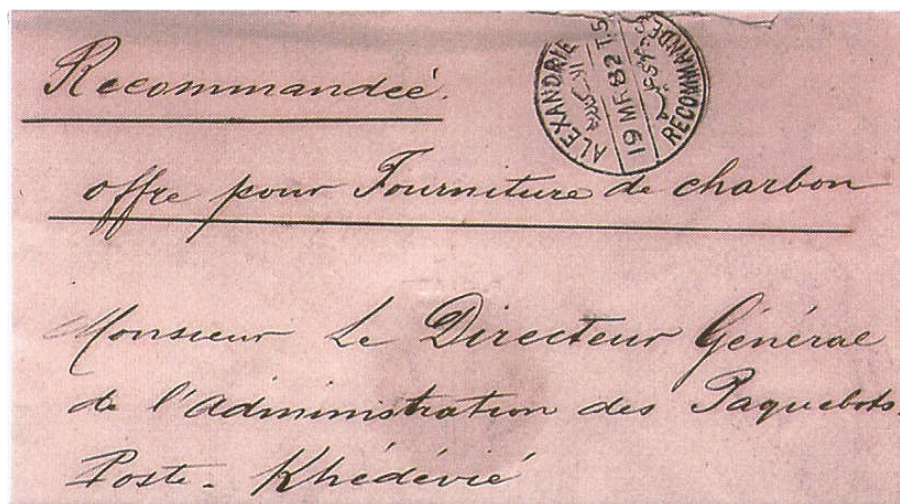 Recommandeé.
ALEXANDRIE
19 MR 82 T.5
RECOMMANDÉ
offre pour Fourniture de charbon
Monsieur Le Directeur Général
de l'Administration des Paquebots-
Poste-Khédévié